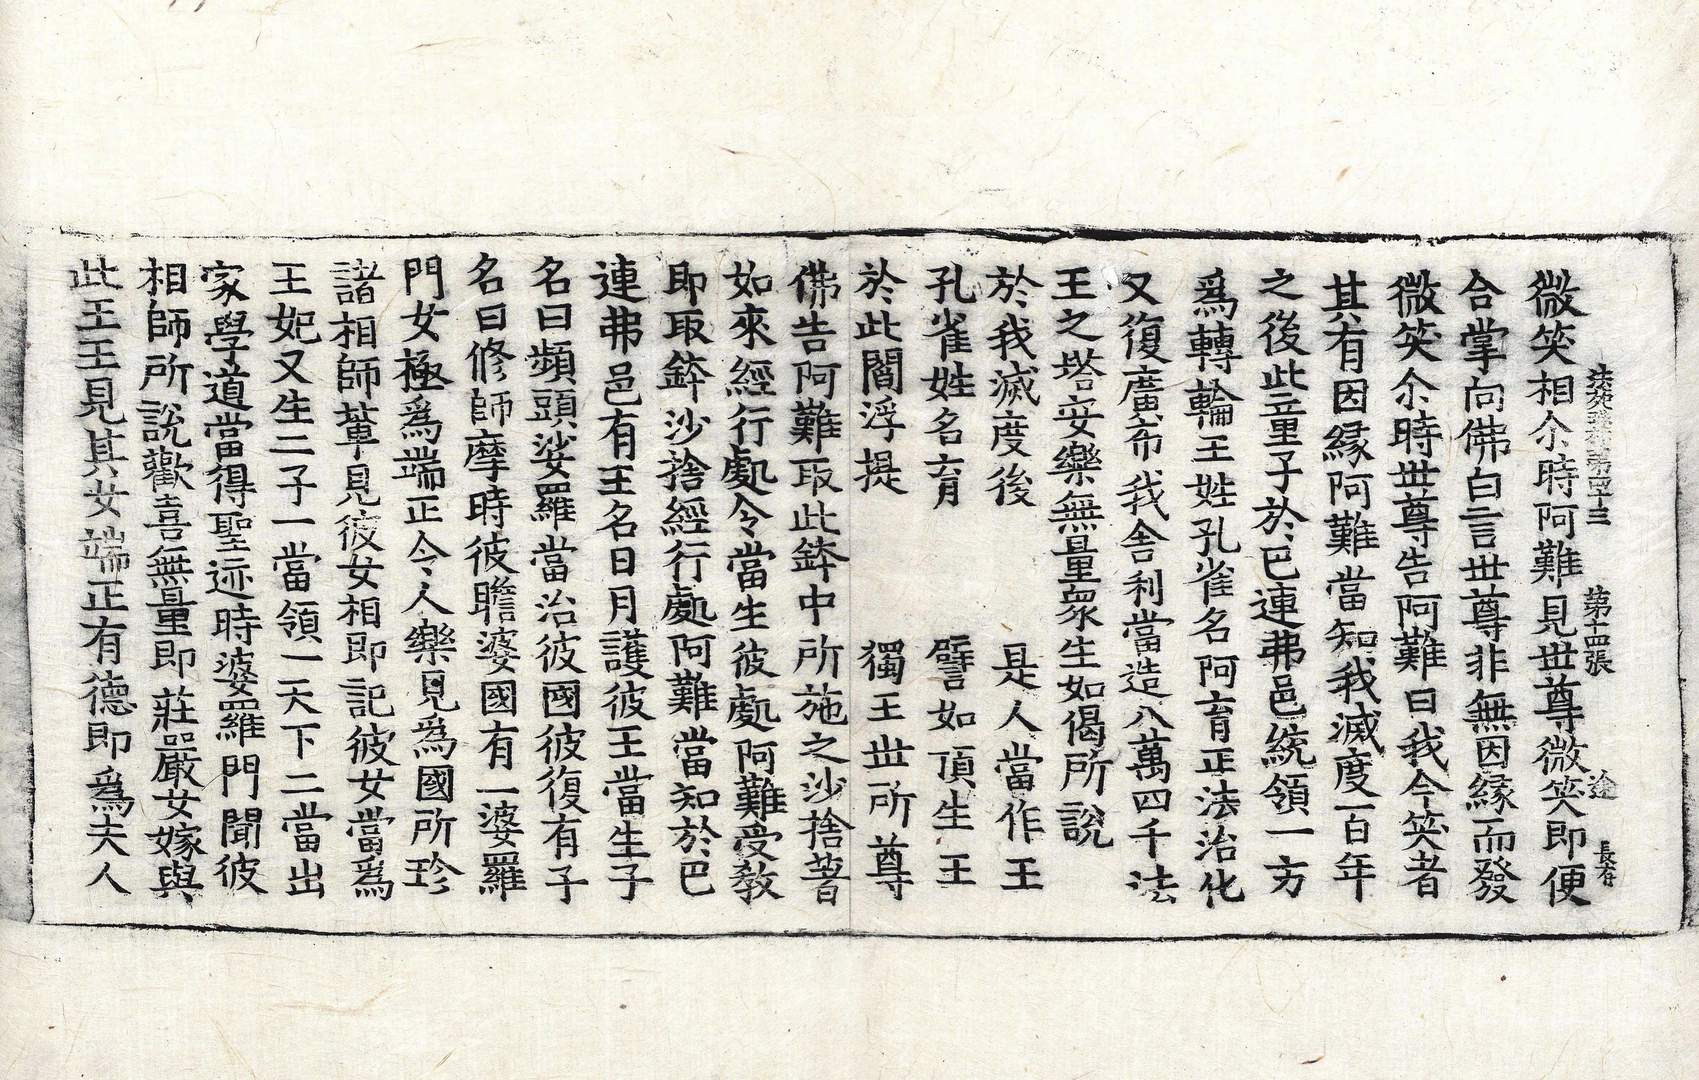 第四十三 第十四張 長存
微笑相尒時阿難見世尊微笑即便
合掌向佛白言世尊非無因緣而發
微笑尒時世尊告阿難曰我今笑者
其有因緣阿難當知我滅度百年
之後此童子於巴連弗邑統領一方
爲轉輪王姓孔雀名阿育正法治化
又復廣布我舍利當造八萬四千法
王之塔安樂無量衆生如偈所說
於我滅度後　是人當作王
孔雀姓名育　譬如頂生王
於此閻浮提　獨王世所尊
佛告阿難取此鉢中所施之沙捨著
如來經行處令當生彼處阿難受教
即取鉢沙捨經行處阿難當知於巴
連弗邑有王名日月護彼王當生子
名曰頻頭娑羅當治彼國彼復有子
名曰修師摩時彼瞻婆國有一婆羅
門女極爲端正令人樂見爲國所珍
諸相師輩見彼女相即記彼女當爲
王妃又生二子一當領一天下二當出
家學道當得聖迹時婆羅門聞彼
相師所說歡喜無量即莊嚴女嫁與
此王王見其女端正有德即爲夫人